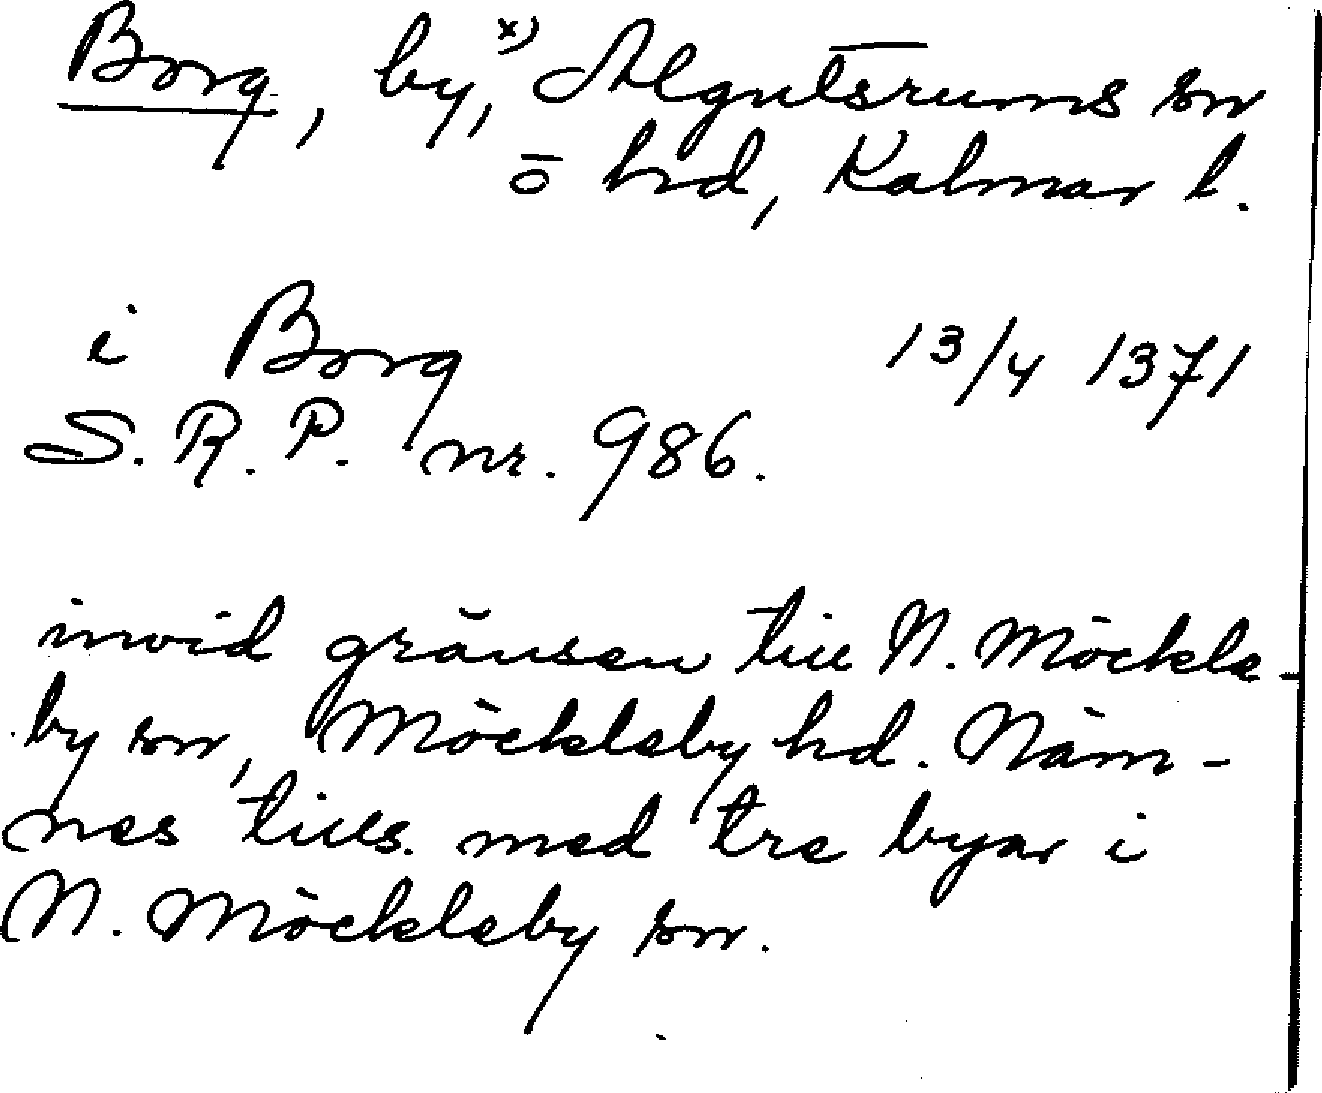 Borg, by,x) Algutsrums sn
o hrd, Kalmar l.
i Borg 13/4 1371
S.R.P. nr. 986.
invid gränsen till N. Möckle-
by sn, Möckleby hd. Näm-
nes tills. med tre byar i
N. Möckleby sn.